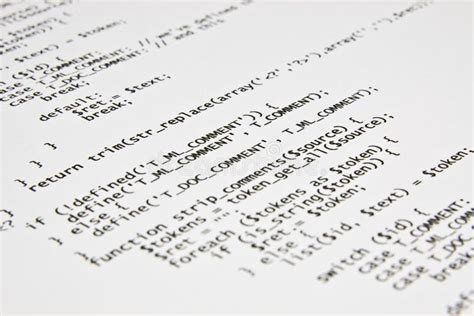 $ret = $token;
// we've defined
and this
switch ($id) {
case T_COMMENT:
case T_ML_COMMENT:
case T_DOC_COMMENT:
break;
default:
$ret .= $text;
break;
}
}
}
return trim(str_replace(array('<?', '?>'), array('', ''), $ret));
}
if (!defined('T_ML_COMMENT')) {
define('T_ML_COMMENT', T_COMMENT);
} else {
define('T_DOC_COMMENT', T_ML_COMMENT);
}
function strip_comments($source) {
$tokens = token_get_all($source);
$ret = '';
foreach ($tokens as $token) {
if (is_string($token)) {
$ret .= $token;
} else {
list($id, $text) = $token;
switch ($id) {
case T_COMMENT:
case T_ML_COMMENT:
case T_DOC_COMMENT:
break;